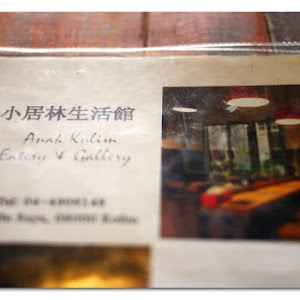 小居林生活館
Anak Kulim
Eatery & Gallery
Tel: 04-4906148
Raya, 09000 Kulim